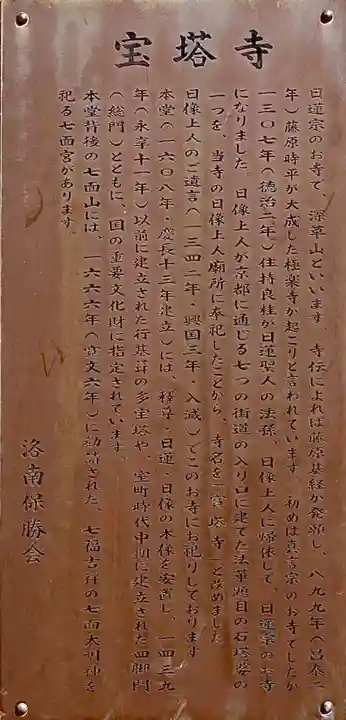 宝塔寺
日蓮宗のお寺で、深草山といいます。寺伝によれば藤原基経が発願し、八九九年（昌泰二
年）藤原時平が大成した極楽寺が起こりと言われています。初めは真言宗のお寺でしたが
一三〇七年（徳治二年）住持良桂が日蓮聖人の法孫、日像上人に帰依して、日蓮宗のお寺
になりました。日像上人が京都に通じる七つの街道の入り口に建てた法華題目の石塔婆の
一つを、当寺の日像上人廟所に奉祀したことから、寺名を「宝塔寺」と改めました
日像上人のご遺言（一三四二年・興国三年・入滅）でこのお寺にお祀りしております
本堂（一六〇八年・慶長十三年建立）には、釈尊・日蓮・日像の木像を安置し、一四三九
年（永享十一年）以前に建立された行基葺の多宝塔や、室町時代中期に建立された四脚門
（総門）とともに、国の重要文化財に指定されています。
本堂背後の七面山には、一六六六年（寛文六年）に勧請された、七福吉祥の七面大明神を
祀る七面宮があります。
洛南保勝会